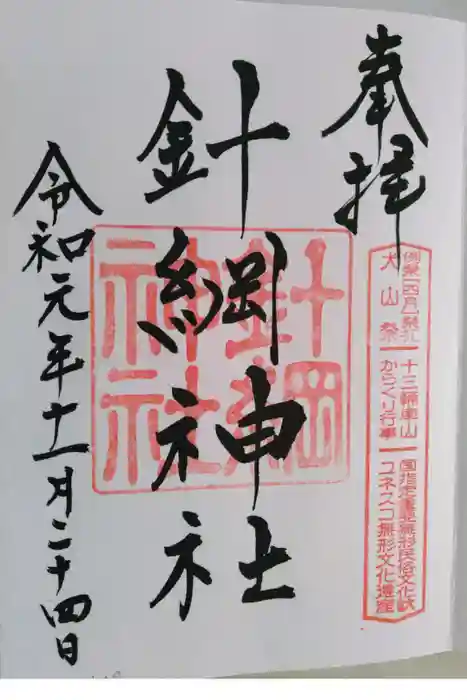 奉拝
例祭「四月」祭礼
犬山祭
十三輛車山
からくり行事
国指定重要無形民俗文化財
ユネスコ無形文化遺産
針綱神社
針綱神社
令和元年十一月二十四日